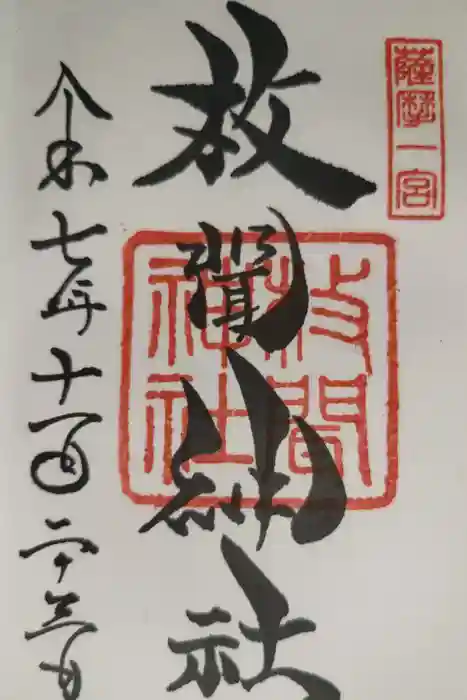 薩摩一宮
枚聞神社
枚聞
神社
令和七年十一月二十三日